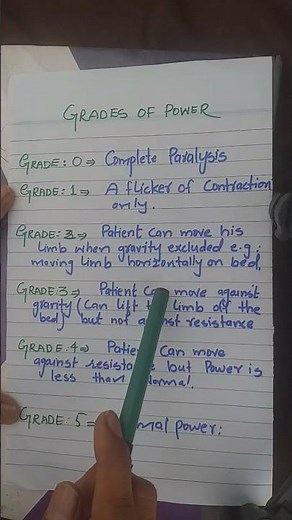 GRADES OF POWER
GRADE: 0 ⇒ Complete Paralysis
GRADE: 1 ⇒ A flicker of Contraction
only.
GRADE: 2 ⇒ Patient Can move his
limb when gravity excluded e.g:
moving limb horizontally on bed.
GRADE: 3 ⇒ Patient Can move against
gravity (Can lift the limb off the
bed) but not against resistance
GRADE: 4 ⇒ Patient Can move
against resistance but Power is
less than Normal.
GRADE: 5 = Normal power: